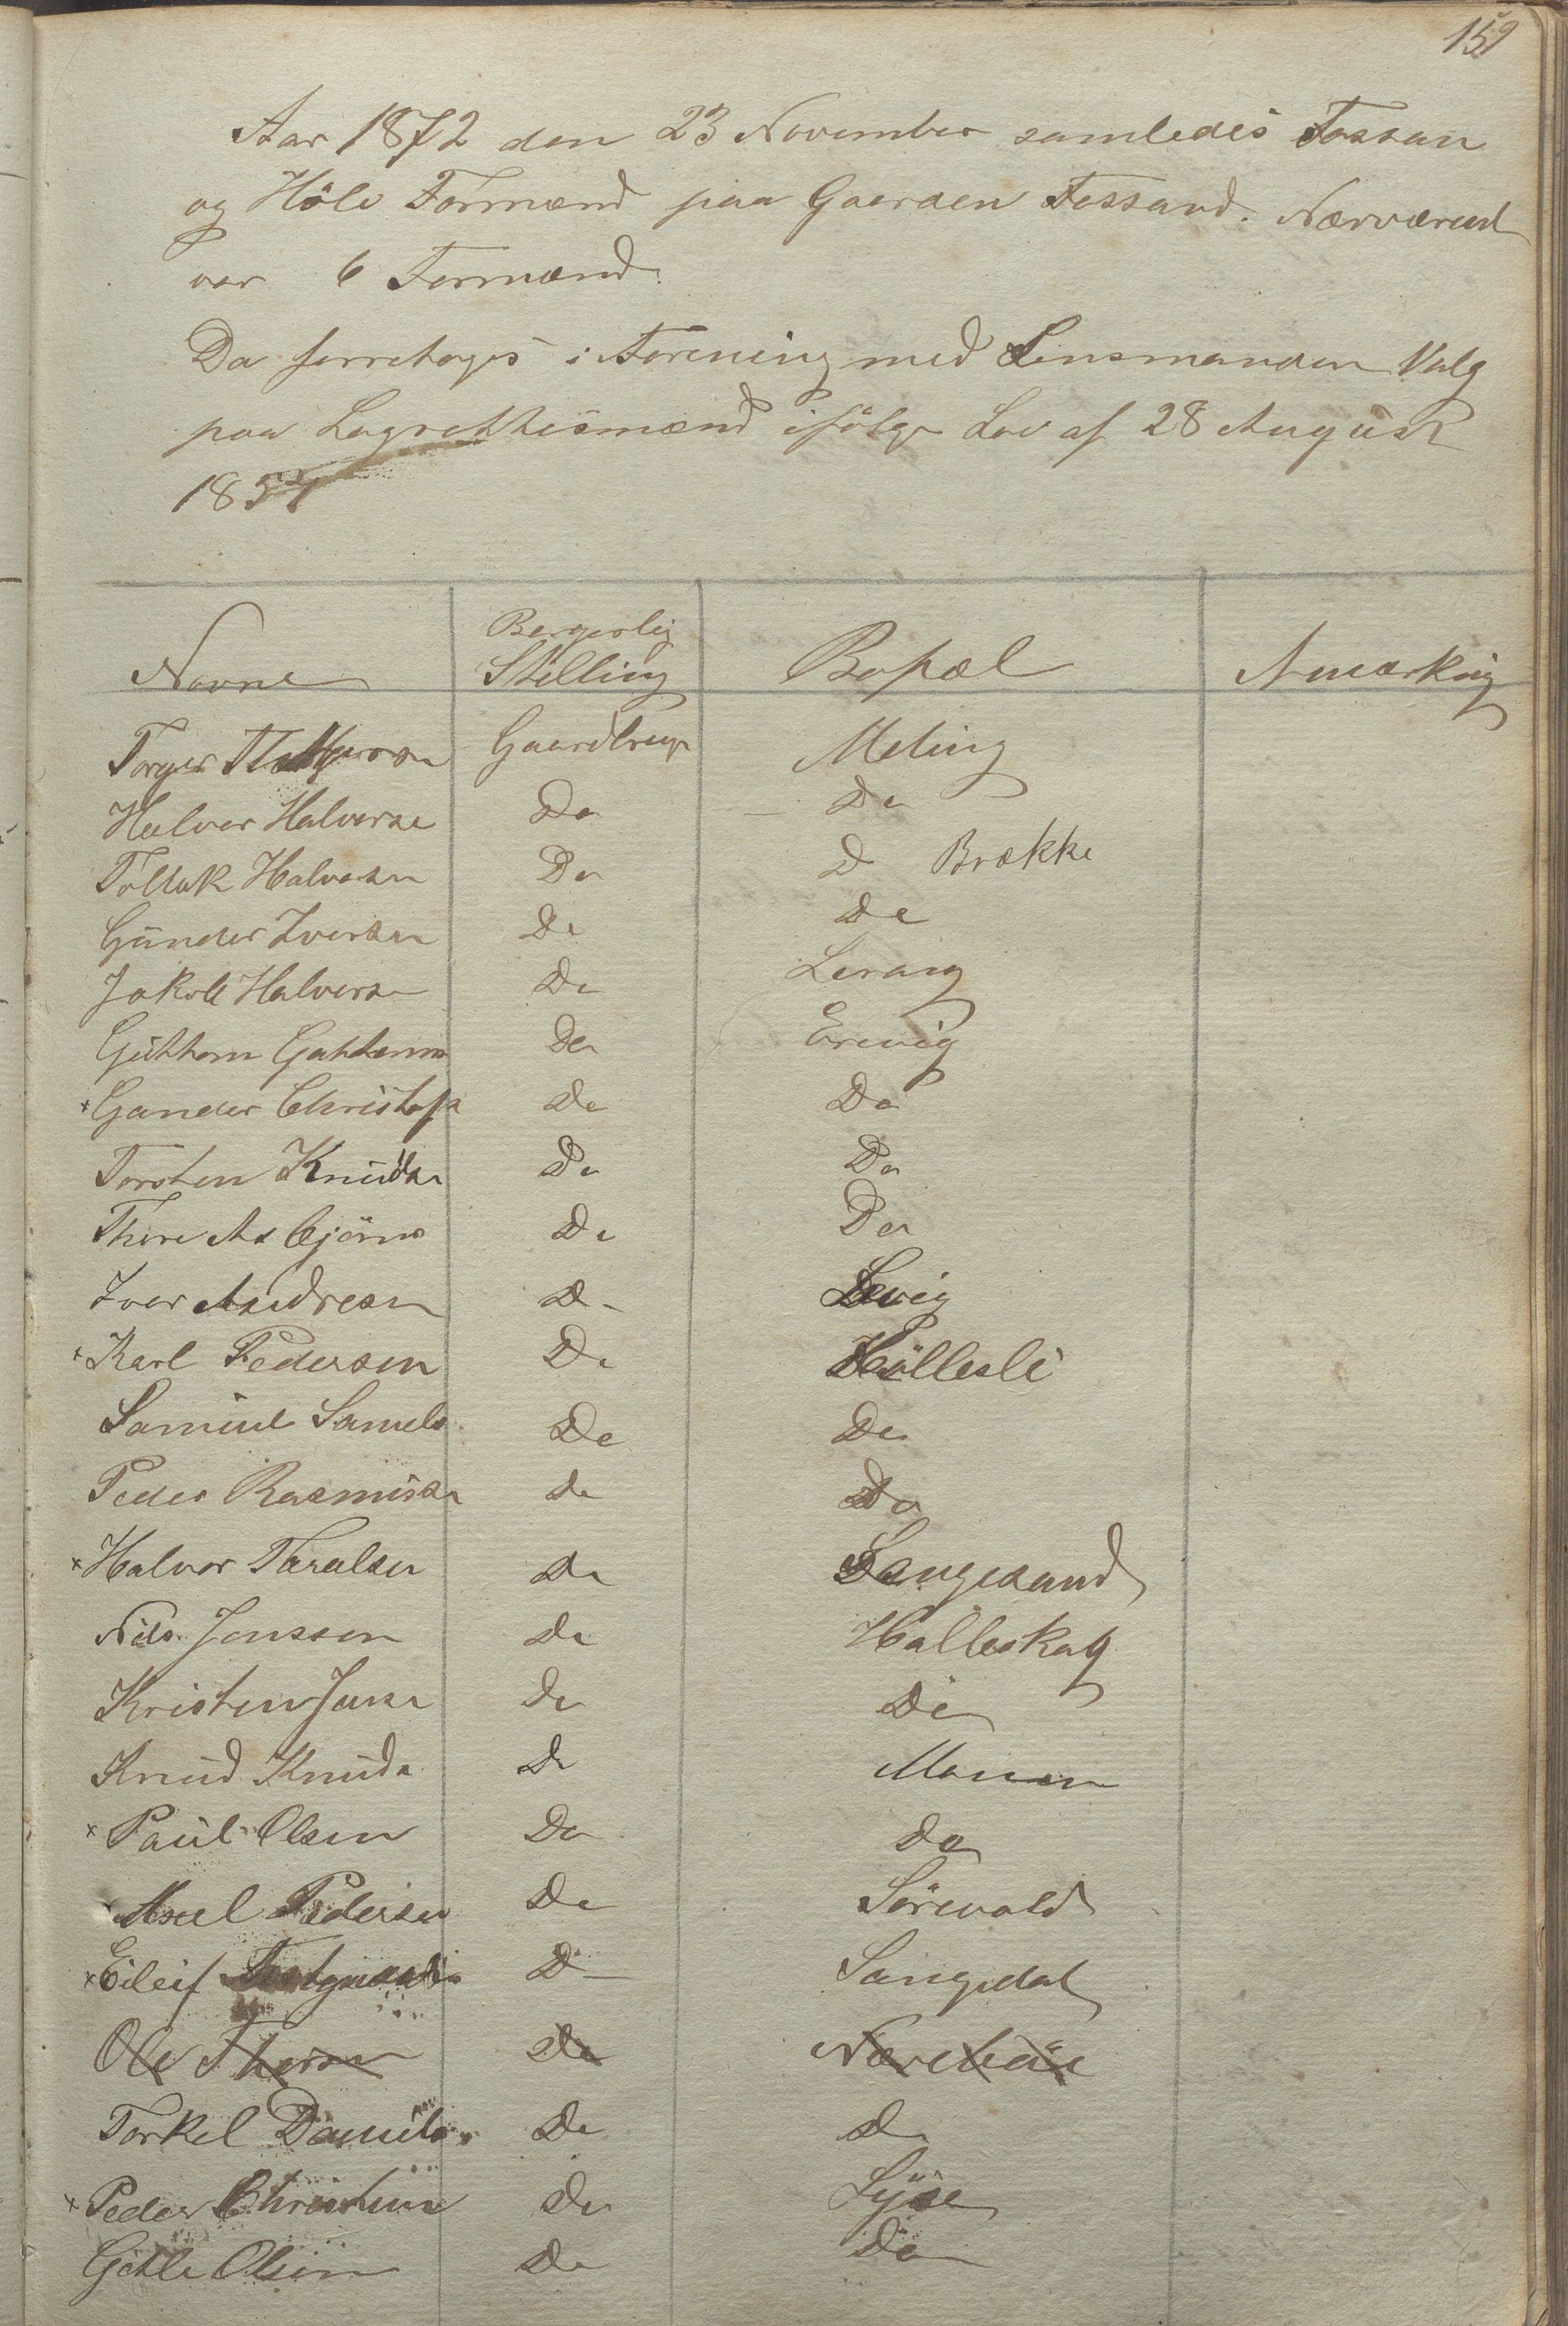 159
Aar 1872 den 23 November samledes Fossan
og Höle Formænd paa Gaarden Fossand. Nærværend
var 6 Formænd.
Da forretoges i Forening med Lensmanden Valg
paa Lagrettesmænd ifölge Lov af 28 August
1854
Navne Borgerlig Stilling Bopæl Anmærkning
Torger Gaardbrug Meling
Halvor Halvorse Do Do
Tollak Halvorsen Do D Brække
Gunder Iversen Do Do
Jakob Halvorse Do Lerang
Guttorm Guttorms Do Erevig
× Gunder Christofs Do Do
Torsten Knudse Do Do
Thore Asbjörns Do Do
Iver Andresen D- Levig
× Karl Pedersen Do Höllesli
Samuel Samuels Do Do
Peder Rasmusse Do Do
× Halvor Tharalsen Do Songesand
Nils Jonssen Do Halleskag
Kristen Jans Do Do
Knud Knuds Do Monen
× Paul Olsen Do do
Axel Pedersen Do Sörevold
× Eileif D- Songedal
Ole Thorsen Do Næreböe
Torkel Daniels Do D
× Peder Christense Do Lyse
Gitle Olsen Do Do